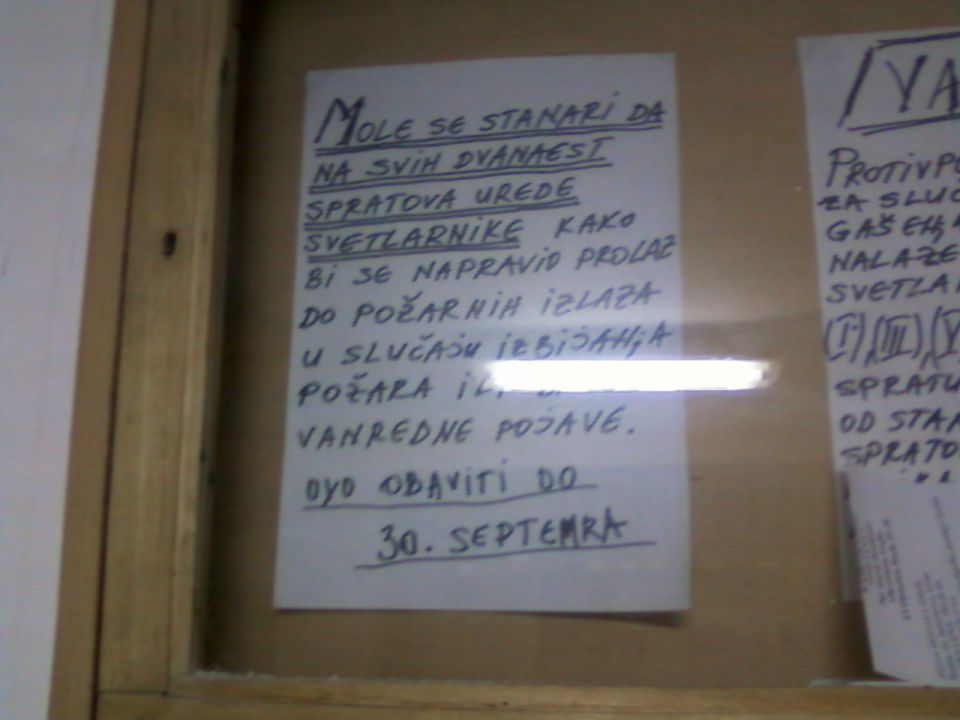 MOLE SE STANARI DA
NA SVIH DVANAEST
SPRATOVA UREDE
SVETLARNIKE KAKO
BI SE NAPRAVIO PROLAZ
DO POŽARNIH IZLAZA
U SLUČAJU IZBIJANJA
POŽARA ILI
VANREDNE POJAVE.
OVO OBAVITI DO
30. SEPTEMRA
VA
PROTIVPO
ZA SLUČ
GAŠENJA
NALAZE
SVETLAR
(I), (III), (V
SPRATU
OD STAN
SPRATO